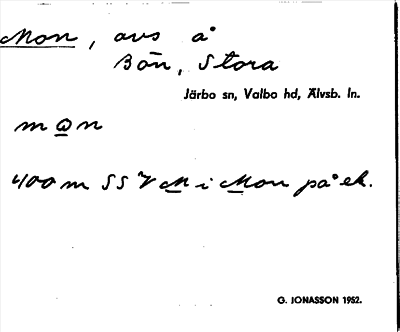 Mon, avs å
Bön, Stora
Järbo sn, Valbo hd, Älvsb. ln.
mωn
400 m SSV M i Mon på ek.
G. JONASSON 1952.